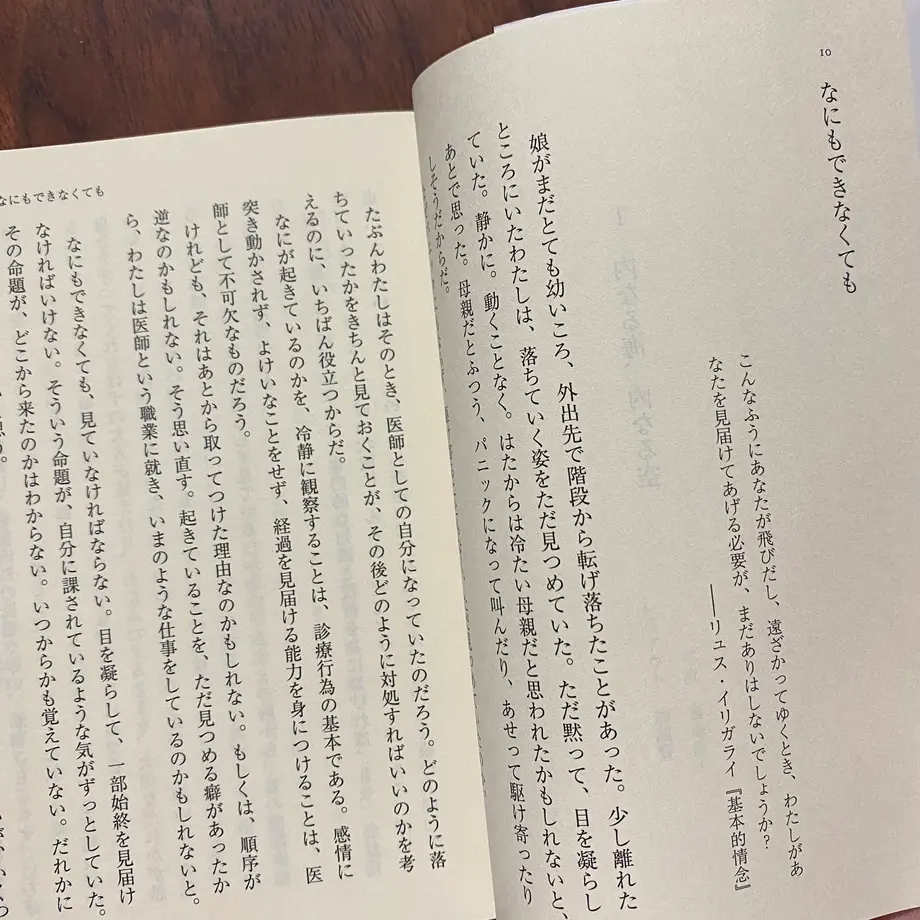 10
なにもできなくても
こんなふうにあなたが飛びだし、遠ざかってゆくとき、わたしがあ
なたを見届けてあげる必要が、まだありはしないでしょうか?
――リュス・イリガライ『基本的情念』
娘がまだとても幼いころ、外出先で階段から転げ落ちたことがあった。少し離れた
ところにいたわたしは、落ちていく姿をただ見つめていた。ただ黙って、目を凝らし
ていた。静かに。動くことなく。はたからは冷たい母親だと思われたかもしれないと、
あとで思った。母親だとふつう、パニックになって叫んだり、あせって駆け寄ったり
しそうだからだ。
なにもできなくても
たぶんわたしはそのとき、医師としての自分になっていたのだろう。どのように落
ちていったかをきちんと見ておくことが、その後どのように対処すればいいのかを考
えるのに、いちばん役立つからだ。
なにが起きているのかを、冷静に観察することは、診療行為の基本である。感情に
突き動かされず、よけいなことをせず、経過を見届ける能力を身につけることは、医
師として不可欠なものだろう。
けれども、それはあとから取ってつけた理由なのかもしれない。もしくは、順序が
逆なのかもしれない。そう思い直す。起きていることを、ただ見つめる癖があったか
ら、わたしは医師という職業に就き、いまのような仕事をしているのかもしれないと。
なにもできなくても、見ていなければならない。目を凝らして、一部始終を見届け
なければいけない。そういう命題が、自分に課されているような気がずっとしていた。
その命題が、どこから来たのかはわからない。いつからかも覚えていない。だれかに